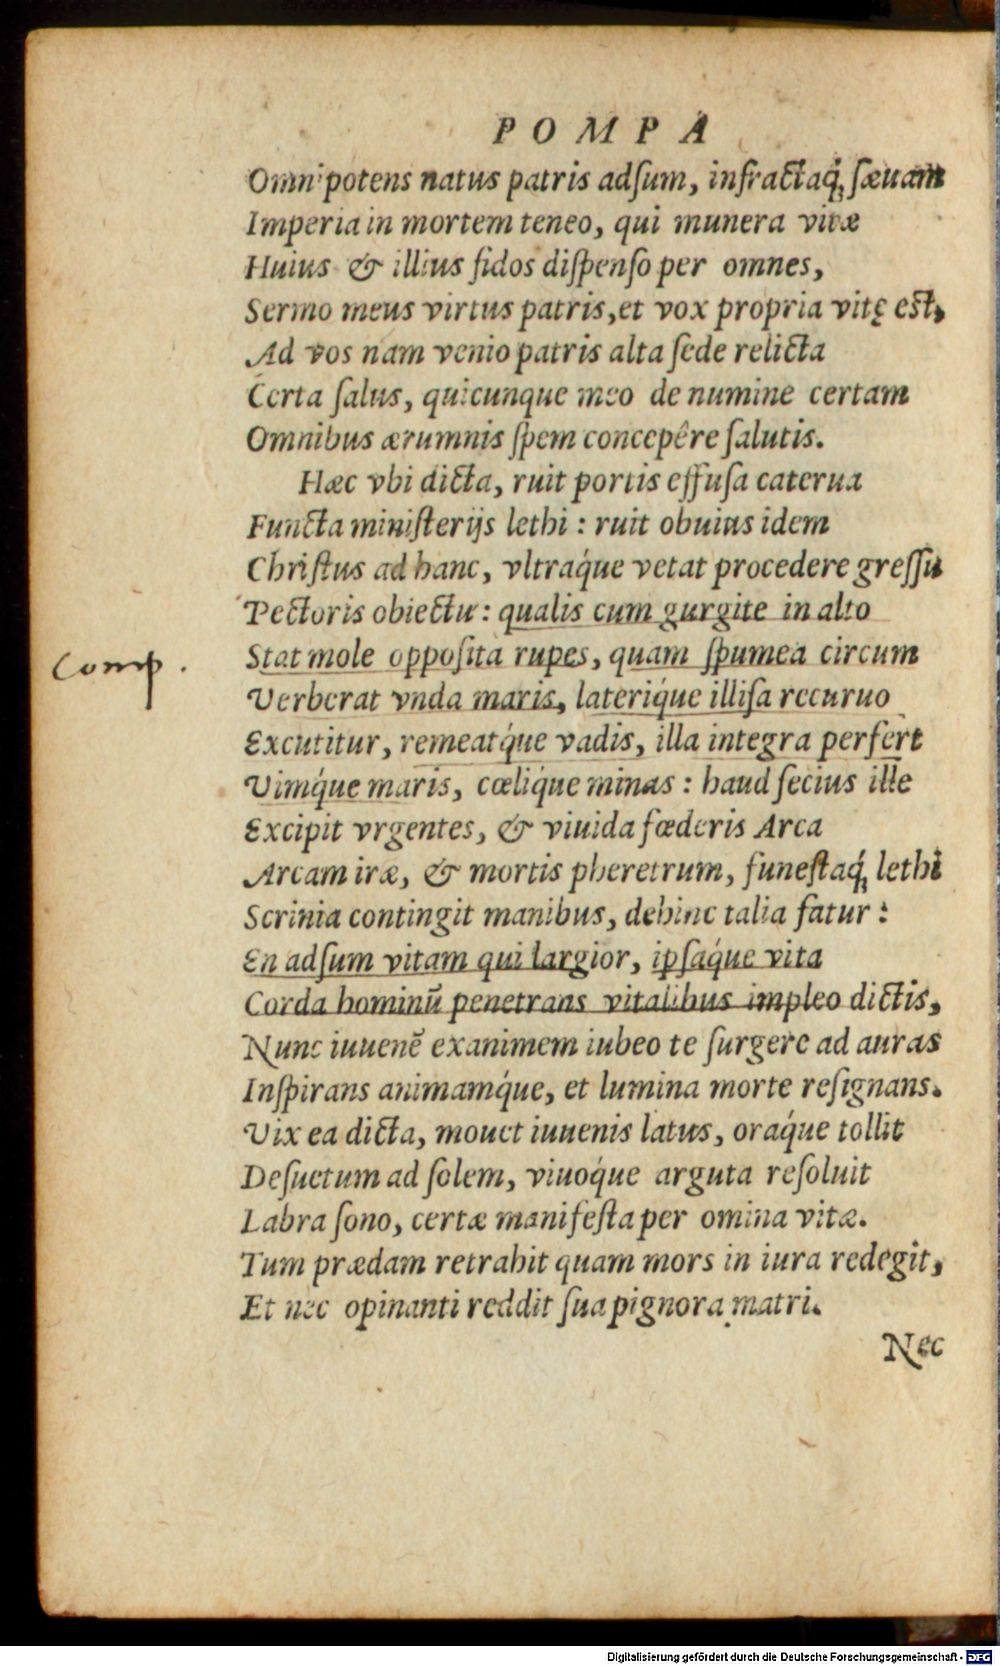 POMPA
Omnipotens natus patris adſum, infractaq́; ſæuam
Imperia in mortem teneo, qui munera vitæ
Huius & illius fidos diſpenſo per omnes,
Sermo meus virtus patris, et vox propria vitę est,
Ad vos nam venio patris alta ſede relicta
Certa ſalus, quicunque meo de numine certam
Omnibus ærumnis ſpem concepêre ſalutis.
Hæc vbi dicta, ruit portis effuſa caterua
Functa miniſterijs lethi : ruit obuius idem
Chriſtus ad hanc, vltraq́ue vetat procedere greſſu
Pectoris obiectu : qualis cum gurgite in alto
Comp.
Stat mole oppoſita rupes, quam ſpumea circum
Verberat vnda maris, lateriq́ue illiſa recuruo
Excutitur, remeatq́ue vadis, illa integra perfert
Vimq́ue maris, cœliq́ue minas : haud ſecius ille
Excipit vrgentes, & viuida fœderis Arca
Arcam iræ, & mortis pheretrum, funeſtaq́; lethi
Scrinia contingit manibus, dehinc talia fatur :
En adſum vitam qui largior, ipſaq́ue vita
Corda hominū penetrans vitalibus impleo dictis,
Nunc iuuenē exanimem iubeo te ſurgere ad auras
Inſpirans animamq́ue, et lumina morte reſignans.
Vix ea dicta, mouet iuuenis latus, oraq́ue tollit
Deſuetum ad ſolem, viuoq́ue arguta reſoluit
Labra ſono, certæ manifeſta per omina vitæ.
Tum prædam retrahit quam mors in iura redegit,
Et nec opinanti reddit ſua pignora matri.
Nec
Digitalisierung gefördert durch die Deutsche Forschungsgemeinschaft - DFG